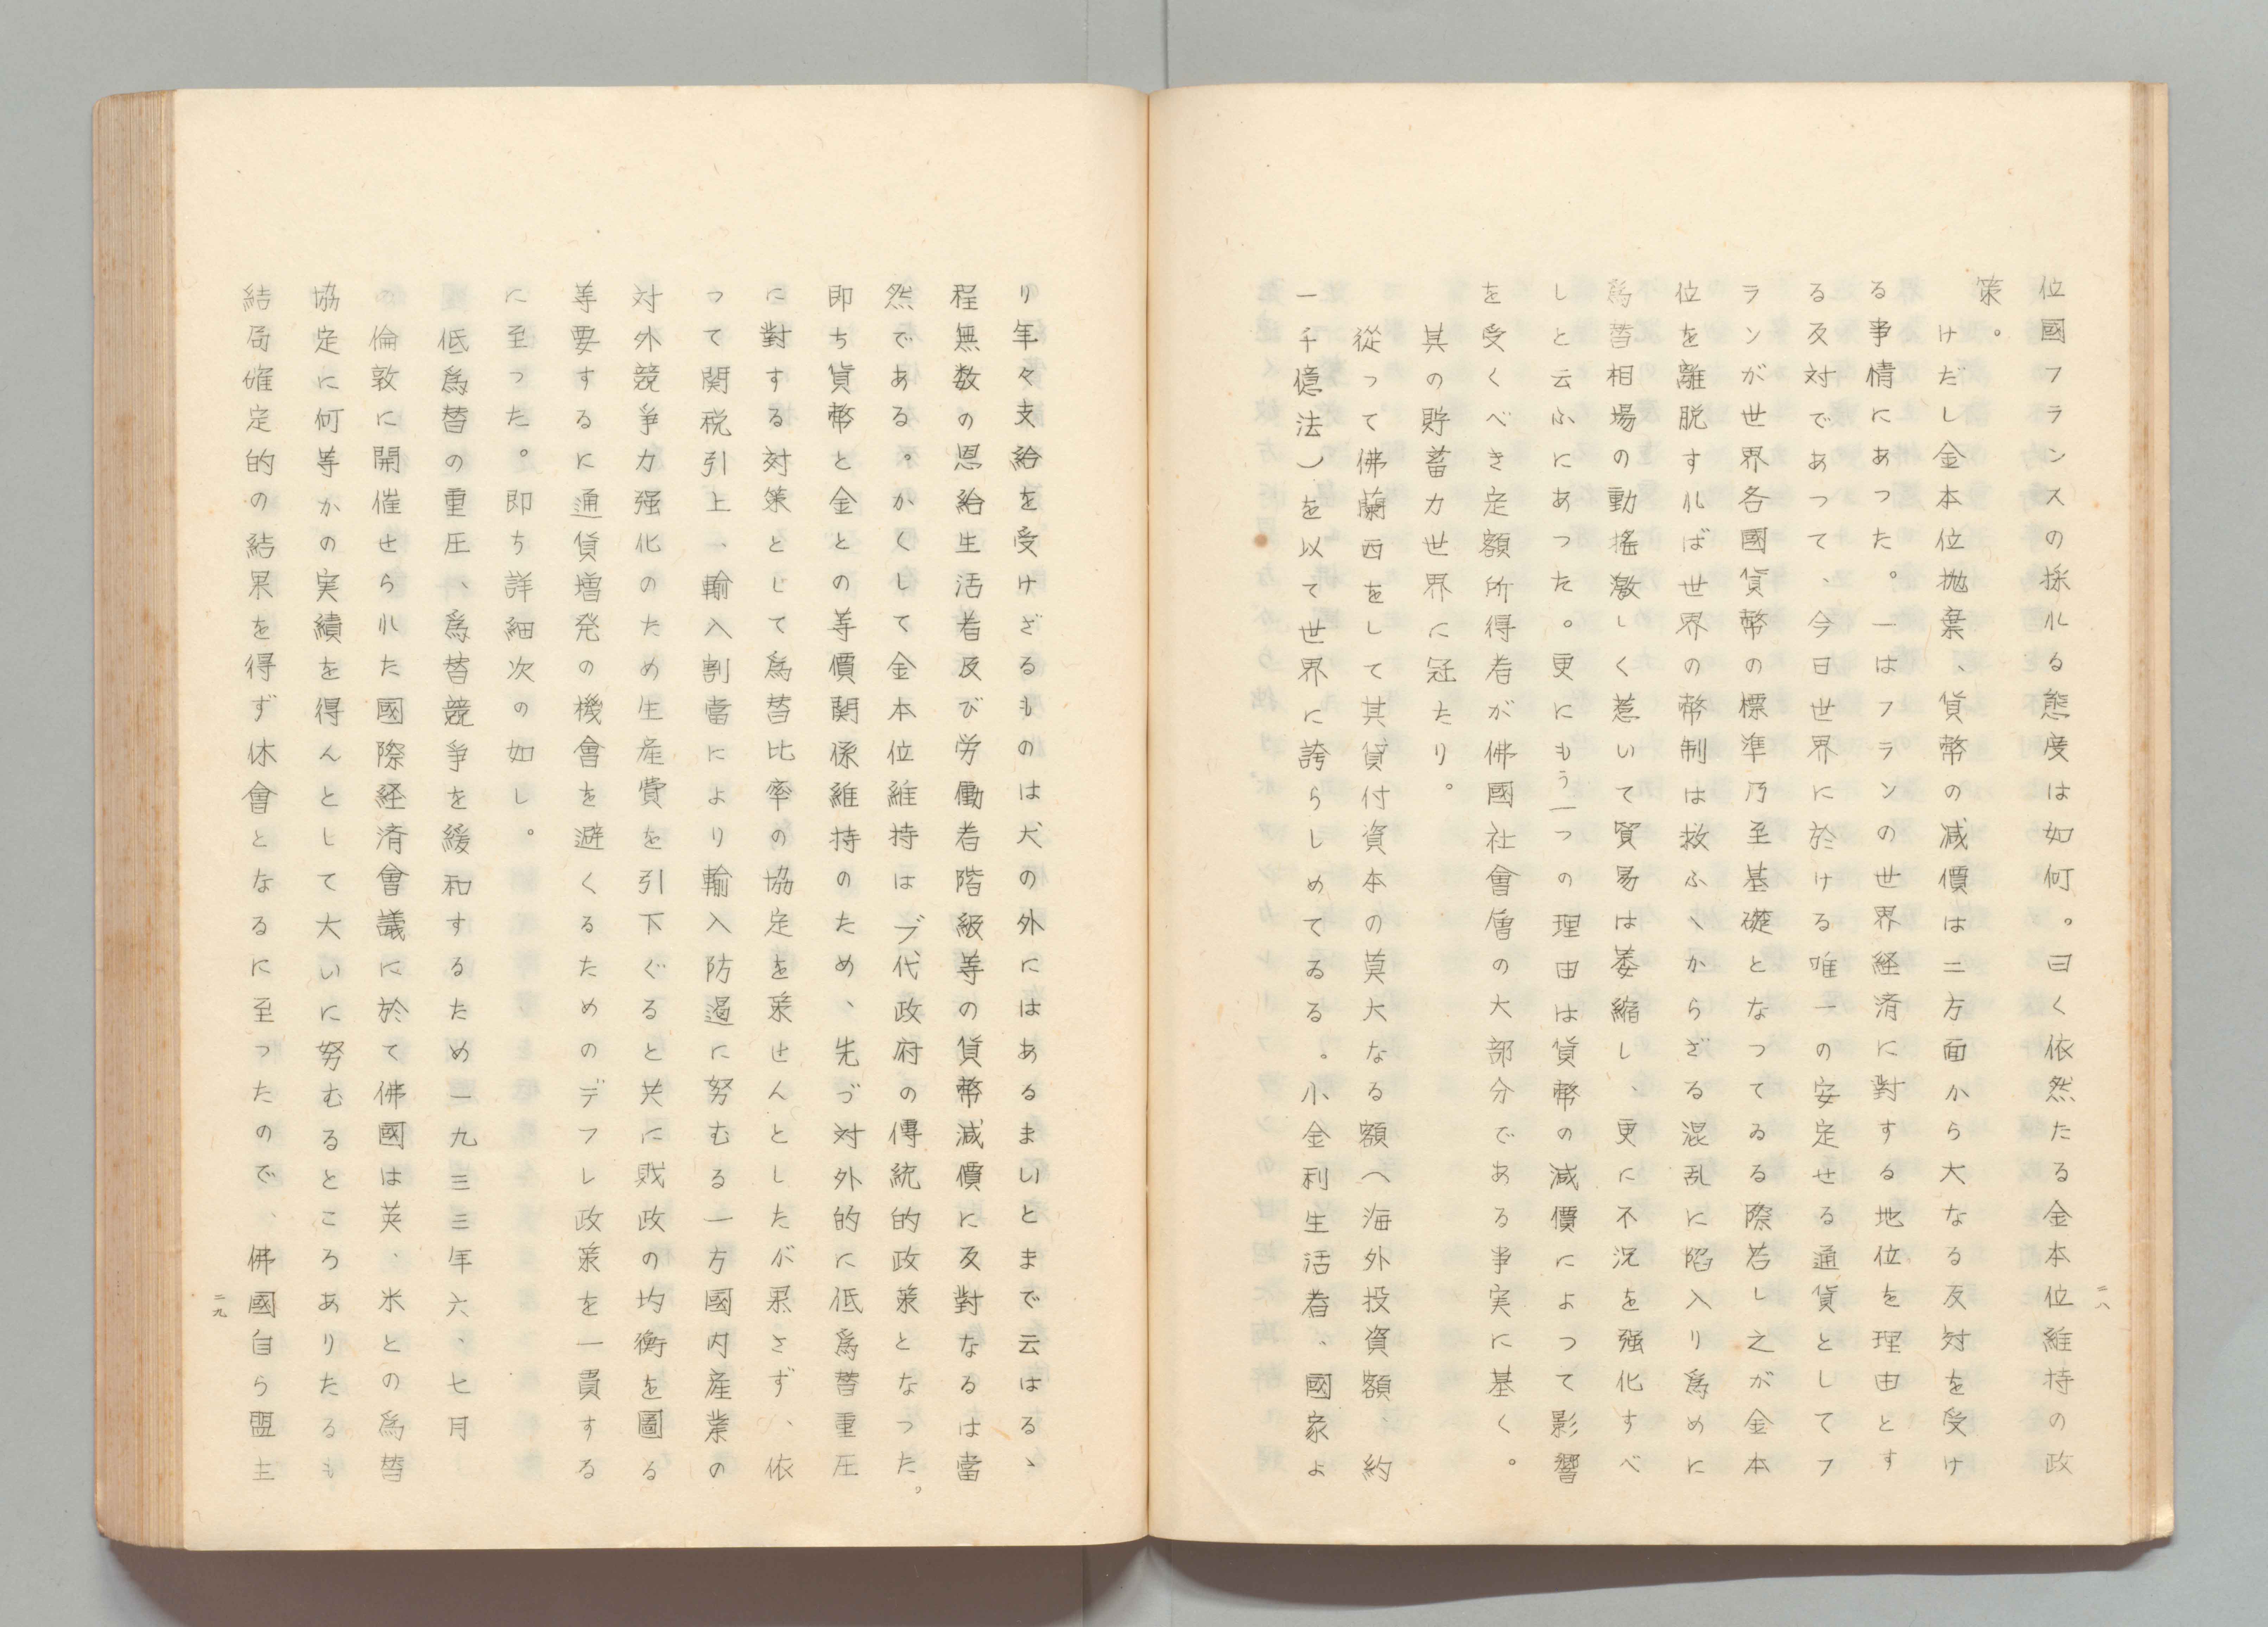 二八
位國フランスの採れる態度は如何。曰く依然たる金本位維持の政
策。
けだし金本位抛棄、貨幣の减價は二方面から大なる反対を受け
る事情にあつた。一はフランの世界経済に對する地位を理由とす
る反対であつて、今日世界に於ける唯一の安定せる通貨としてフ
ランが世界各國貨幣の標準乃至基礎となつてゐる際若し之が金本
位を離脱すれば世界の幣制は救ふ可からざる混乱に陷入り為めに
為替相場の動搖激しく惹いて貿易は萎縮し、更に不況を强化すべ
しと云ふにあつた。更にもう一つの理由は貨幣の減價によつて影響
を受くべき定額所得者が佛國社會層の大部分である事実に基く。
其の貯蓄力世界に冠たり。
從つて佛蘭西をして其貸付資本の莫大なる額（海外投資額、約
一千億法）を以て世界に誇らしめてゐる。小金利生活者、國家よ
り年々支給を受けざるものは犬の外にはあるまいとまで云はるゝ
程無数の恩給生活者及び労働者階級等の貨幣減價に反對なるは當
然である。かくして金本位維持はブ代政府の傳統的政策となつた。
即ち貨幣と金との等價関係維持のため、先づ対外的に低為替重圧
に對する対策として為替比率の協定を策せんとしたが果さず、依
つて関税引上、輸入割當により輸入防遏に努むる一方國内産業の
対外競爭力强化のため生産費を引下ぐると共に財政の均衡を圖る
等要するに通貨増発の機會を避くるためのデフレ政策を一貫する
に至つた。即ち詳細次の如し。
低為替の重圧、為替競爭を緩和するため一九三三年六、七月
の倫敦に開催せられた國際経済會議に於て佛國は英、米との為替
協定に何等かの実績を得んとして大いに努むるところありたるも
結局確定的の結果を得ず休會となるに至つたので、佛國自ら盟主
二九